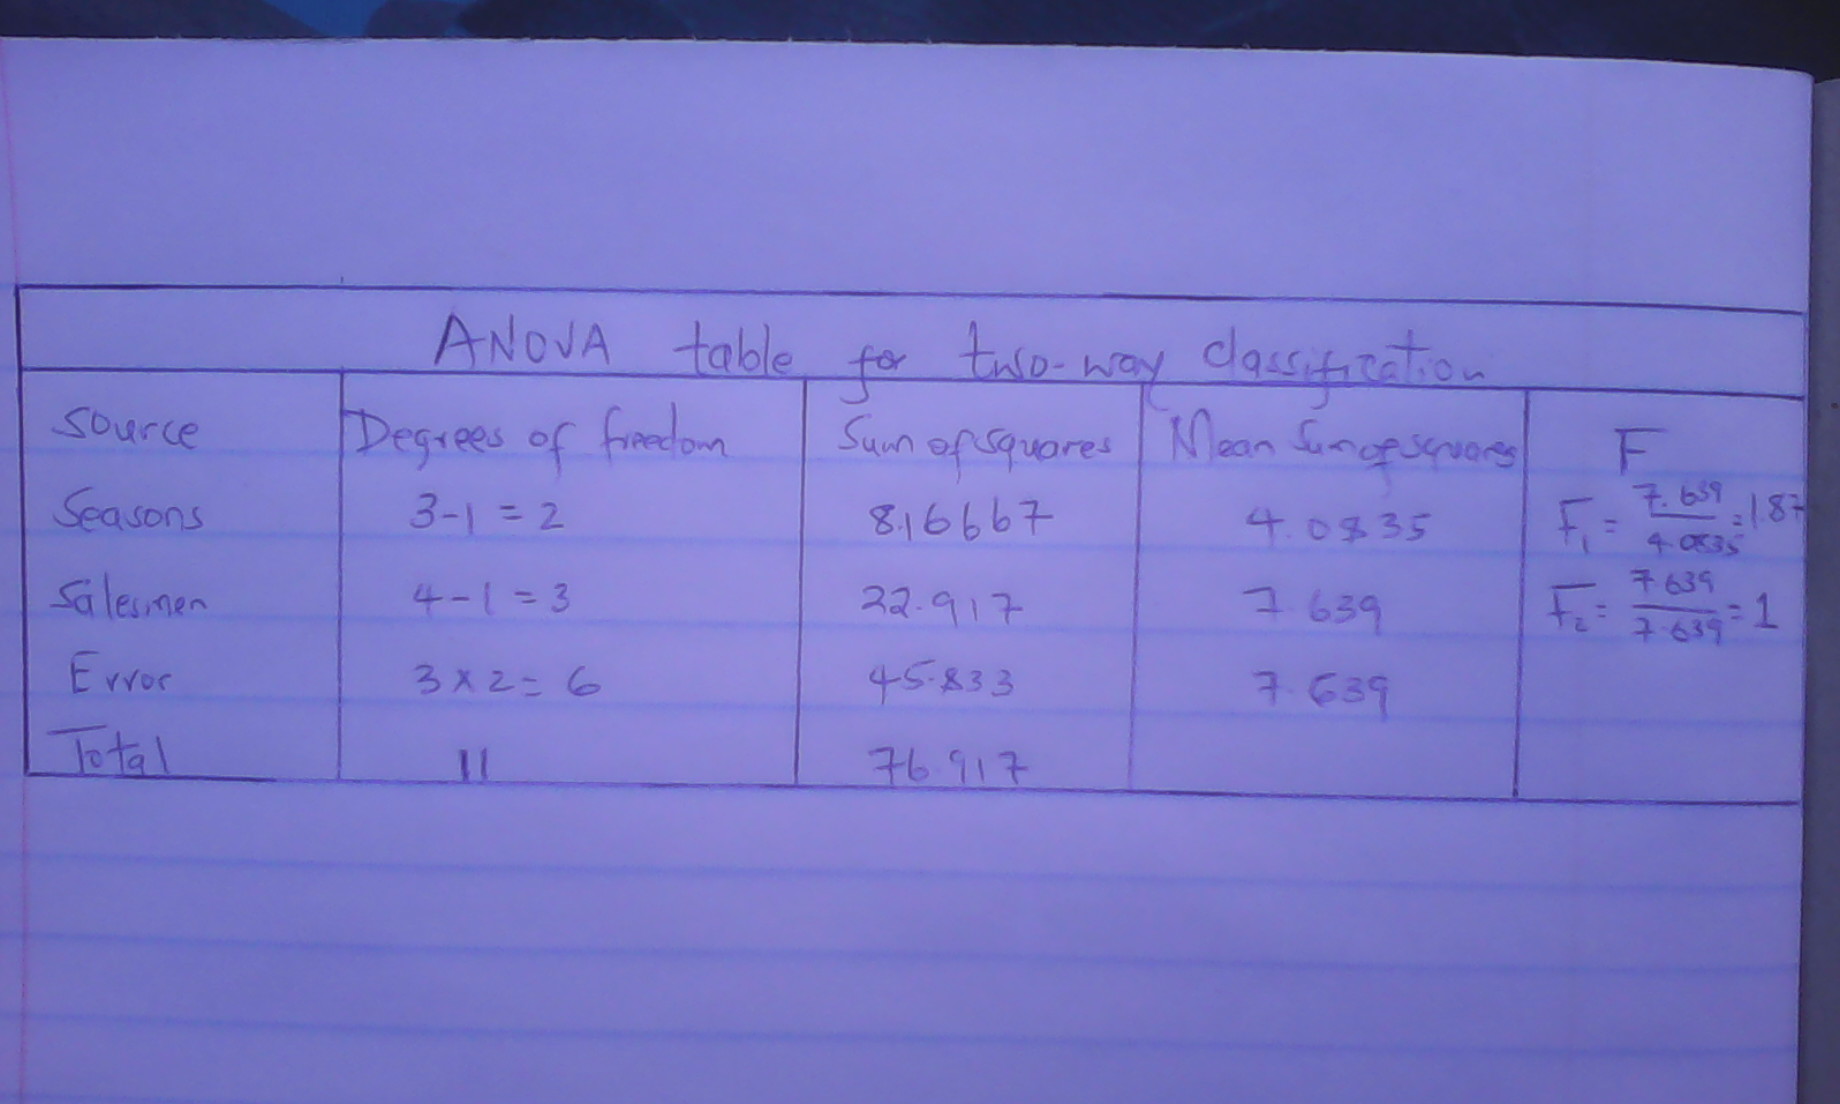 ANOVA table for two-way classification
Source Degrees of freedom Sum of squares Mean Sum of squares F
Seasons 3-1 = 2 8.16667 4.0835 F₁ = 7.639/4.0835 = 1.87
Salesmen 4-1 = 3 22.917 7.639 F₂ = 7.639/7.639 = 1
Error 3 × 2 = 6 45.833 7.639
Total 11 76.917